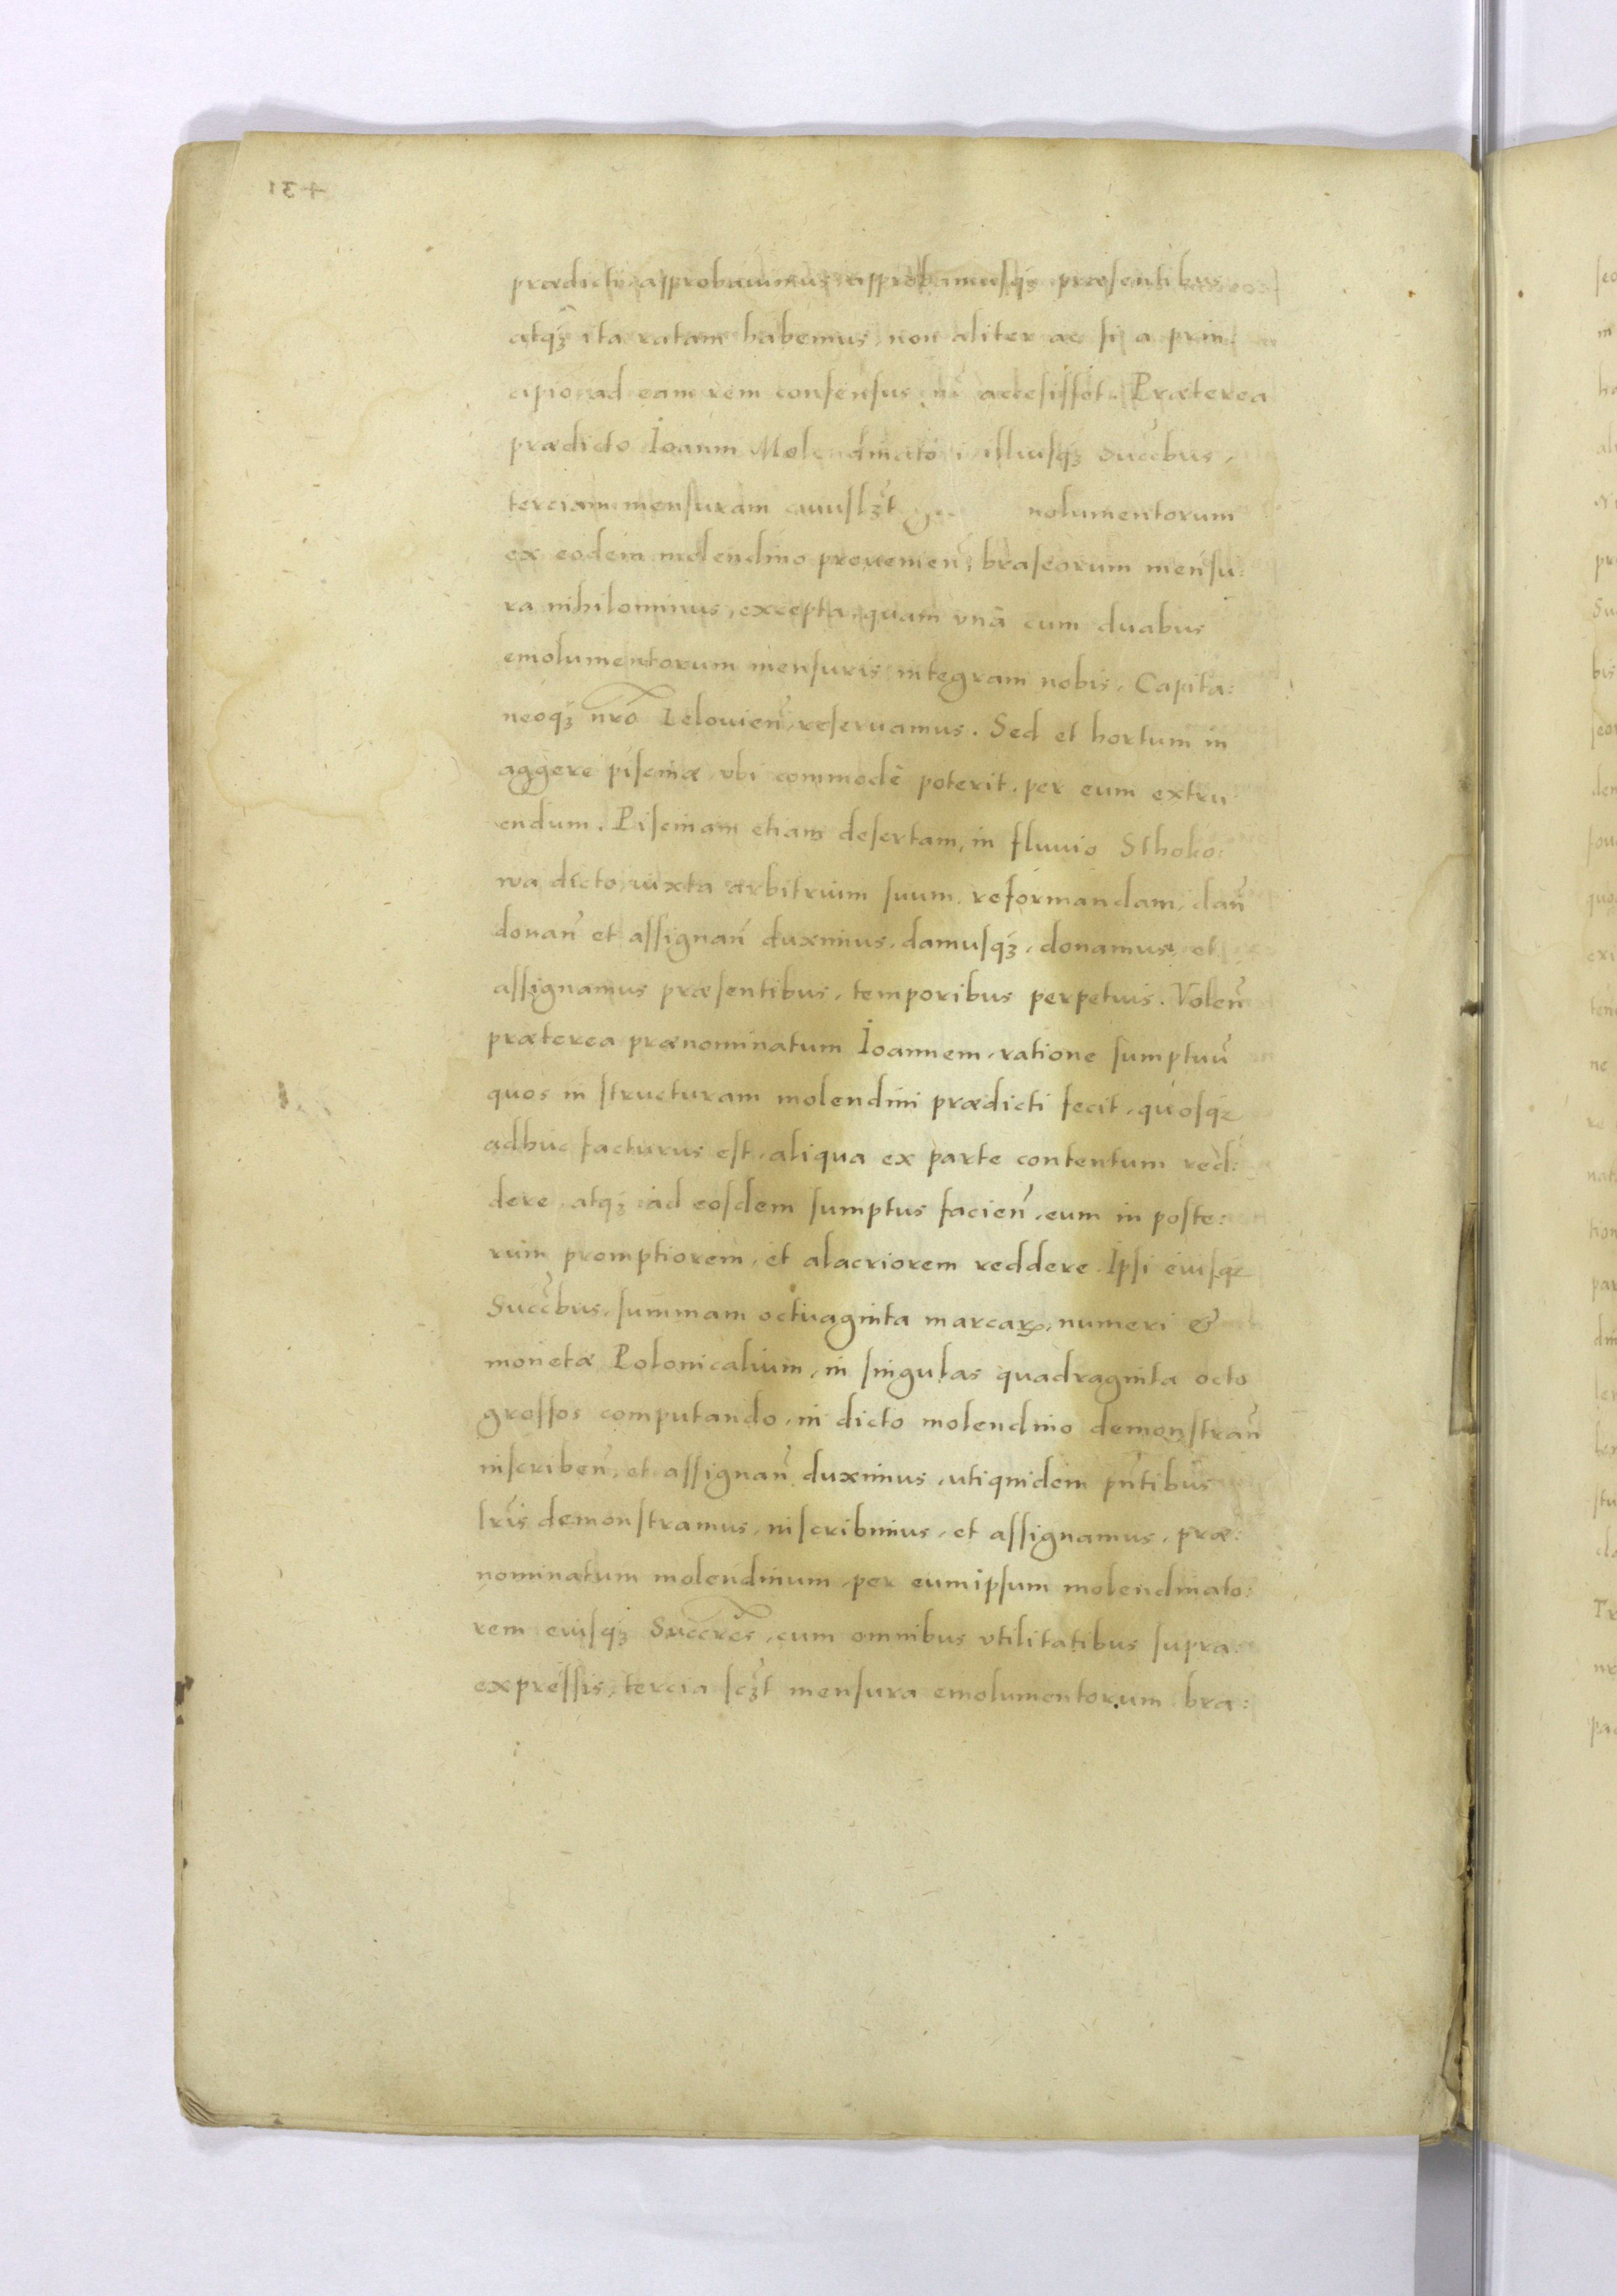 prædicti, approbauimus, approbamusq́ꝫ præsentibus
atq́ꝫ ita ratam habemus, non aliter ac si a prin:
cipio, ad eam rem consensus nr̃ accesisset. Præterea
prædicto Ioanni Molendinatori illiusq́ꝫ Succ̃bus,
terciam mensuram nolumentorum
ex eodem molendino prouenien̄, braseorum mensu:
ra nihilominus, excepta, quam vnà cum duabus
emolumentorum mensuris integram nobis, Capita:
neoq́ꝫ nr̃o Lelouien̄, reseruamus. Sed et hortum in
aggere piscinæ, vbi commodè poterit, per eum extru:
endum. Piscinam etiam desertam, in fluuio Sthoko:
wa dicto, iuxta arbitrium suum, reformandam, dan̄
donan̄ et assignan̄ duximus, damusq́ꝫ, donamus, et
assignamus præsentibus, temporibus perpetuis. Volen̄
præterea prænominatum Ioannem, ratione sumptuũ
quos in structuram molendini prædicti fecit, quosq́ꝫ
adhuc facturus est, aliqua ex parte contentum red:
dere, atq́ꝫ ad eosdem sumptus facien̄, eum in poste:
rum promptiorem, et alacriorem reddere. Ipsi eiusq́ꝫ
Succ̃bus, summam octuaginta marcaꝝ, numeri &
monetæ Polonicalium, in singulas quadraginta octo
grossos computando, in dicto molendino demonstran̄
inscriben̄, et assignan̄ duximus, utiquidem pñtibus
lr̃is demonstramus, inscribimus, et assignamus, præ:
nominatum molendinum, per eumipsum molendinato:
rem eiusq́ꝫ Succr̃es, cum omnibus vtilitatibus supra:
expressis, tercia scꝫt mensura emolumentorum bra: